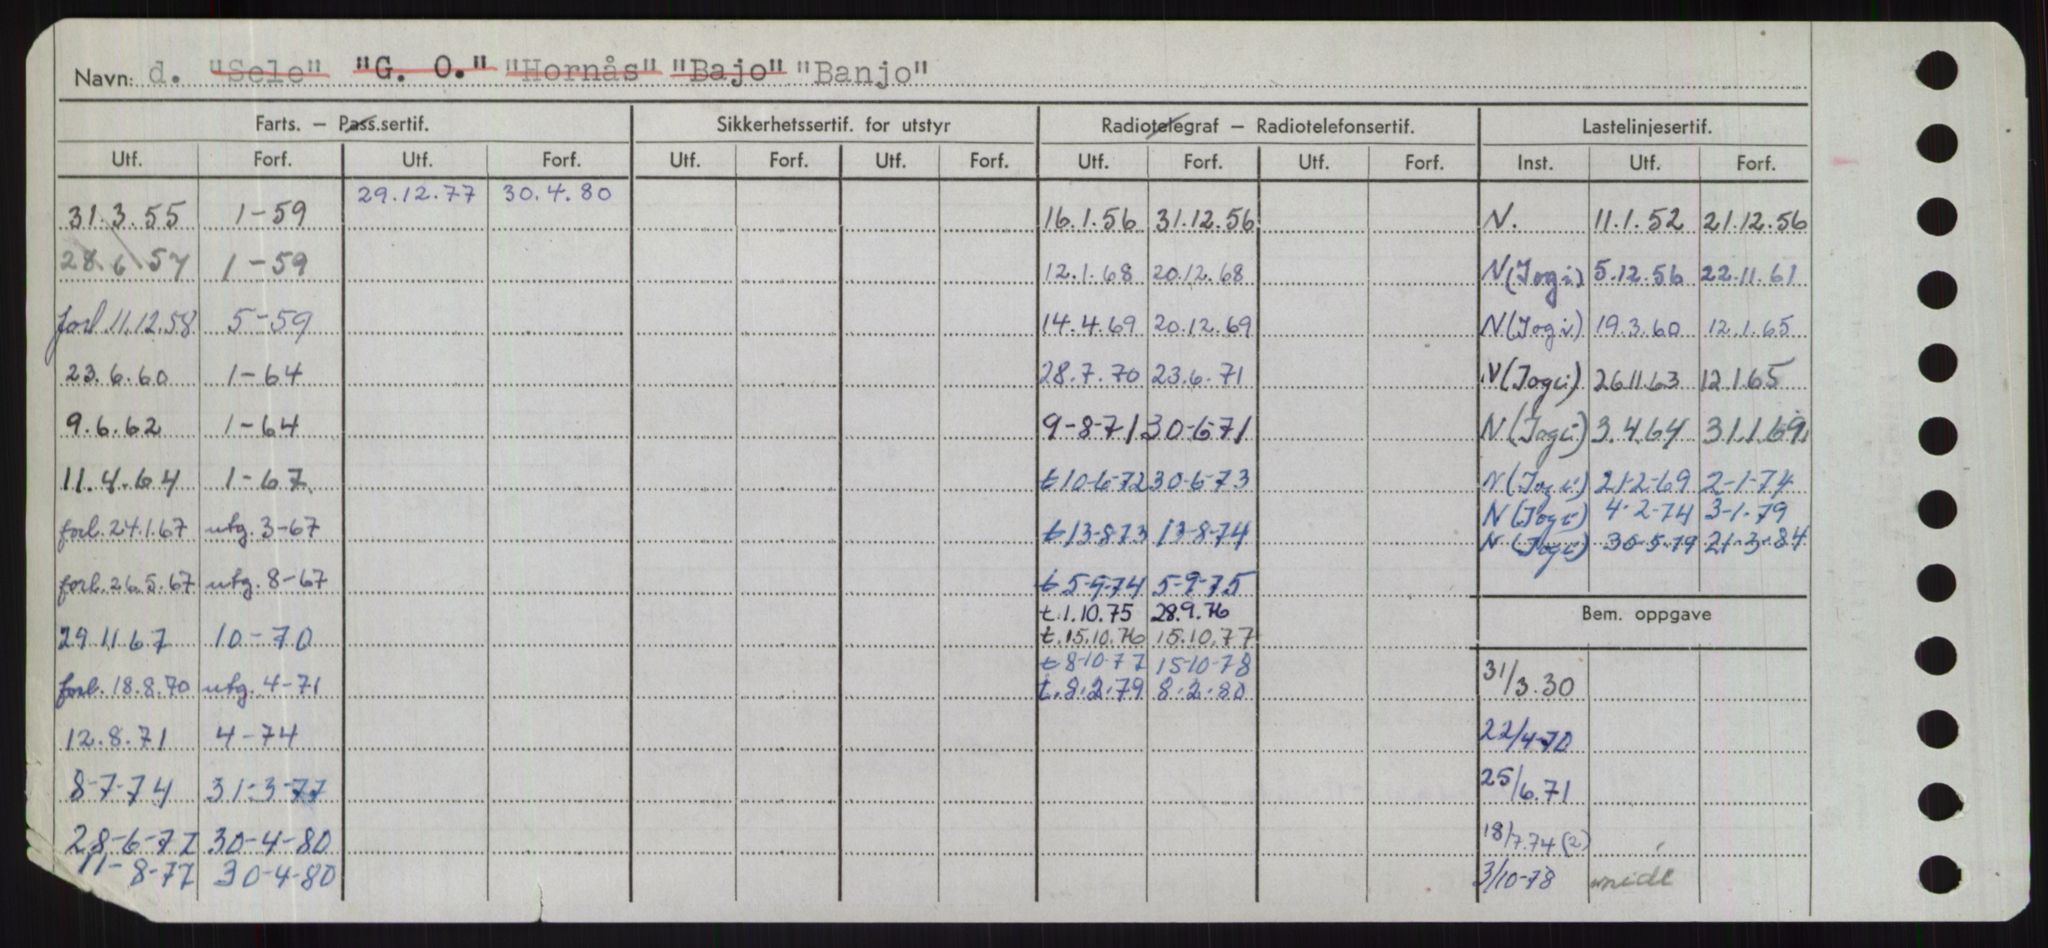 Navn: d. "Sele" "G. O." "Hornås" "Bajo" "Banjo"
Farts. – Pass.sertif. Sikkerhetssertif. for utstyr Radiotelegraf – Radiotelefonsertif. Lastelinjesertif.
Utf. Forf. Utf. Forf. Utf. Forf. Utf. Forf. Utf. Forf. Utf. Forf. Inst. Utf. Forf.
29.12.77 30.4.80
31.3.55 1-59 16.1.56 31.12.56 N. 11.1.52 21.12.56
28.6.57 1-59 12.1.68 20.12.68 N(Jogi) 5.12.56 22.11.61
forl 11.12.58 5-59 14.4.69 20.12.69 N(Jogi) 19.3.60 12.1.65
23.6.60 1-64 28.7.70 23.6.71 N(Jogi) 26.11.63 12.1.65
9.6.62 1-64 9-8-71 30-6-71 N(Jogi) 3.4.64 31.1.69
11.4.64 1-67 t10-6-72 30-6-73 N(Jogi) 21-2-69 2-1-74
N(Jogi) 4-2-74 3-1.79
forl. 24.1.67 utg. 3-67 t13-8-73 13-8-74 N(Jogi) 30-5-79 21-3-84
forl. 26.5.67 utg. 8-67 t5-9-74 5-9-75
t.1.10.75 28.9.76 Bem. oppgave
29.11.67 10-70 t.15.10.76 15.10.77
t8-10-77 15-10-78
forl. 18.8.70 utg. 4-71 t.8.2.79 8.2.80 31/3.30
12.8.71 4-74 22/4-70
8-7-74 31-3-77 25/6.71
28-6-77 30-4-80 18/7.74(2)
11-8-77 30-4-80 3/10-78